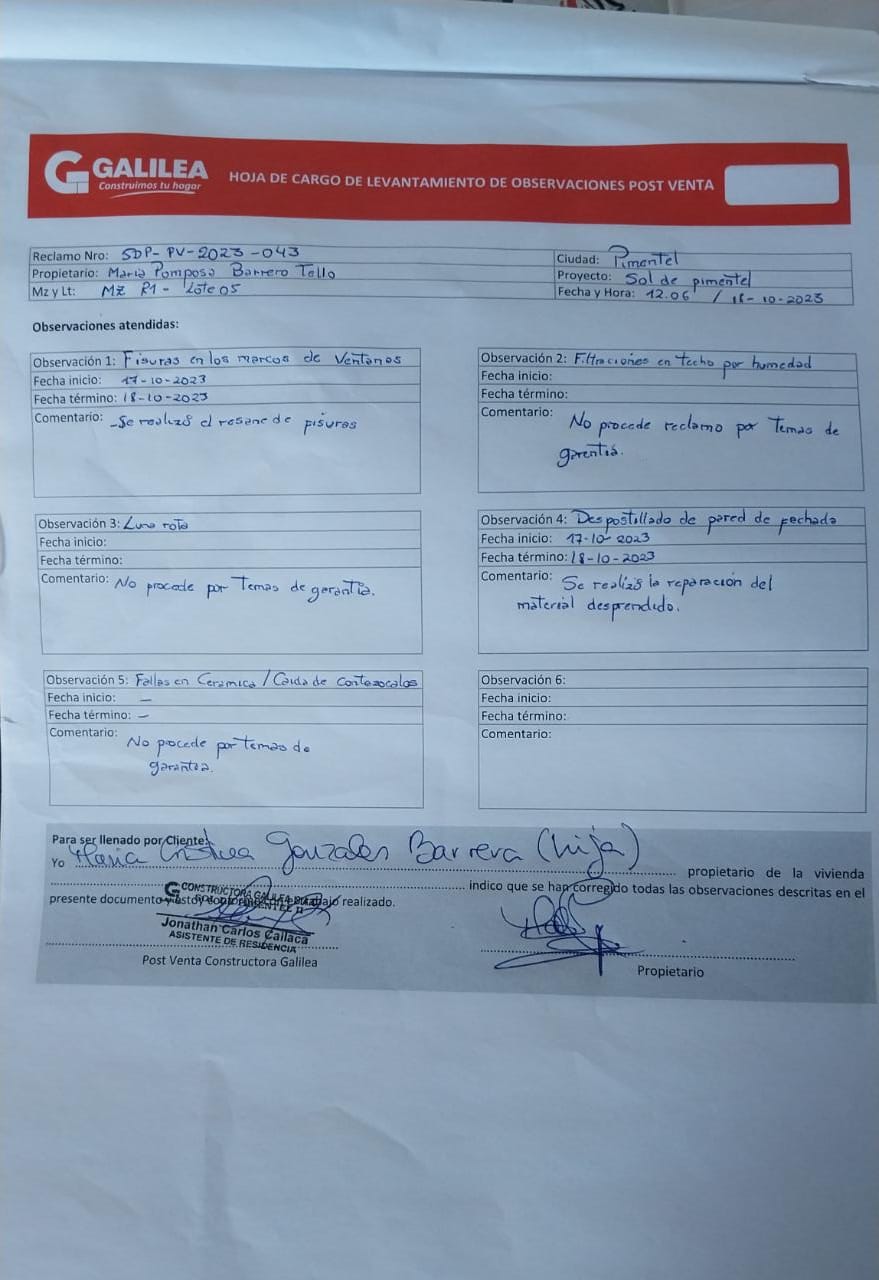 GALILEA
Construimos tu hogar
HOJA DE CARGO DE LEVANTAMIENTO DE OBSERVACIONES POST VENTA
Reclamo Nro: SDP-PV-2023-043
Propietario: Maria Pomposa Barrero Tello
Mz y Lt: MZ P1 - Lote 05
Ciudad: Pimentel
Proyecto: Sol de pimentel
Fecha y Hora: 12.06 / 18-10-2023
Observaciones atendidas:
Observación 1: Fisuras en los marcos de Ventanas
Fecha inicio: 17-10-2023
Fecha término: 18-10-2023
Comentario: -Se realizó el resane de pisuras
Observación 2: Filtraciones en techo por humedad
Fecha inicio:
Fecha término:
Comentario: No procede reclamo por Temas de
garentia.
Observación 3: Luna rota
Fecha inicio:
Fecha término:
Comentario: No procede por Temas de garantia.
Observación 4: Despostillado de pared de fachada
Fecha inicio: 17-10-2023
Fecha término: 18-10-2023
Comentario: Se realizó la reparación del
material desprendido.
Observación 5: Fallas en Ceramica / Caida de Contezocalos
Fecha inicio: —
Fecha término: —
Comentario: No procede por temas de
garantia.
Observación 6:
Fecha inicio:
Fecha término:
Comentario:
Para ser llenado por Cliente:
Yo Maria Cristina Gonzales Barrera (hija) propietario de la vivienda
indico que se han corregido todas las observaciones descritas en el
presente documento y estoy trabajo realizado.
CONSTRUCTORA GALILEA
Jonathan Carlos Callaca
ASISTENTE DE RESIDENCIA
Post Venta Constructora Galilea
Propietario